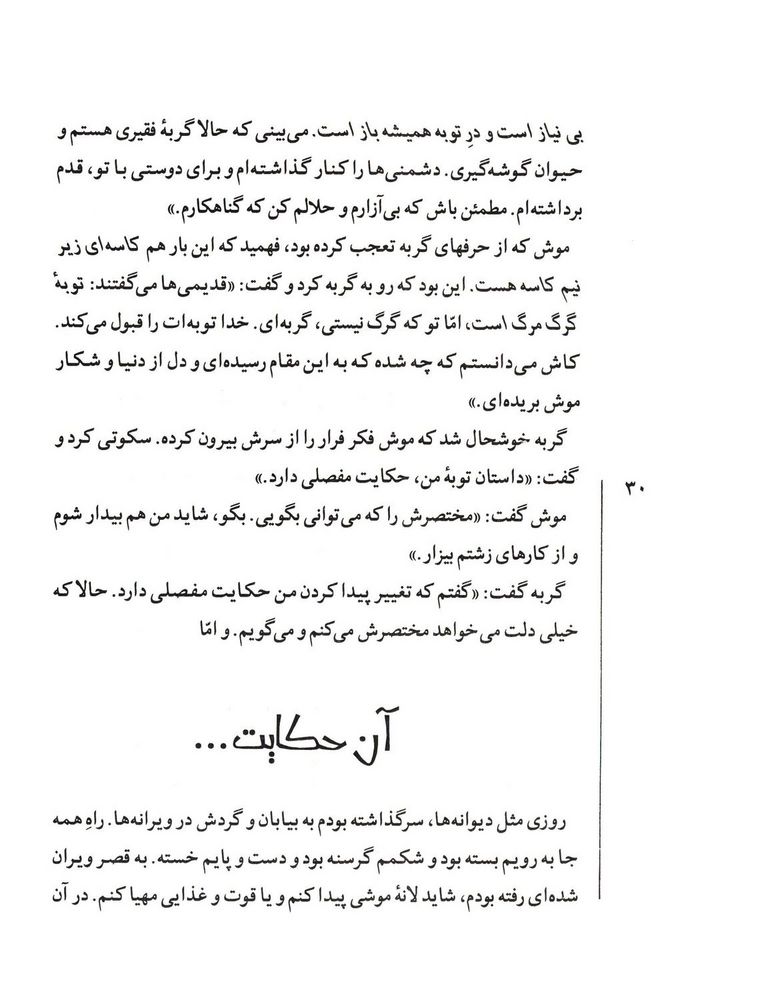 بی نیاز است و درِ توبه همیشه باز است. می‌بینی که حالا گربهٔ فقیری هستم و
حیوان گوشه‌گیری. دشمنی‌ها را کنار گذاشته‌ام و برای دوستی با تو، قدم
برداشته‌ام. مطمئن باش که بی‌آزارم و حلالم کن که گناهکارم.»
موش که از حرفهای گربه تعجب کرده بود، فهمید که این بار هم کاسه‌ای زیر
نیم کاسه هست. این بود که رو به گربه کرد و گفت: «قدیمی‌ها می‌گفتند: توبهٔ
گرگ مرگ است، امّا تو که گرگ نیستی، گربه‌ای. خدا توبه‌ات را قبول می‌کند.
کاش می‌دانستم که چه شده که به این مقام رسیده‌ای و دل از دنیا و شکار
موش بریده‌ای.»
گربه خوشحال شد که موش فکر فرار را از سرش بیرون کرده. سکوتی کرد و
گفت: «داستان توبهٔ من، حکایت مفصلی دارد.»
۳۰
موش گفت: «مختصرش را که می‌توانی بگویی. بگو، شاید من هم بیدار شوم
و از کارهای زشتم بیزار.»
گربه گفت: «گفتم که تغییر پیدا کردن من حکایت مفصلی دارد. حالا که
خیلی دلت می‌خواهد مختصرش می‌کنم و می‌گویم. و امّا
آن حکایت...
روزی مثل دیوانه‌ها، سرگذاشته بودم به بیابان و گردش در ویرانه‌ها. راهِ همه
جا به رویم بسته بود و شکمم گرسنه بود و دست و پایم خسته. به قصر ویران
شده‌ای رفته بودم، شاید لانهٔ موشی پیدا کنم و یا قوت و غذایی مهیا کنم. در آن